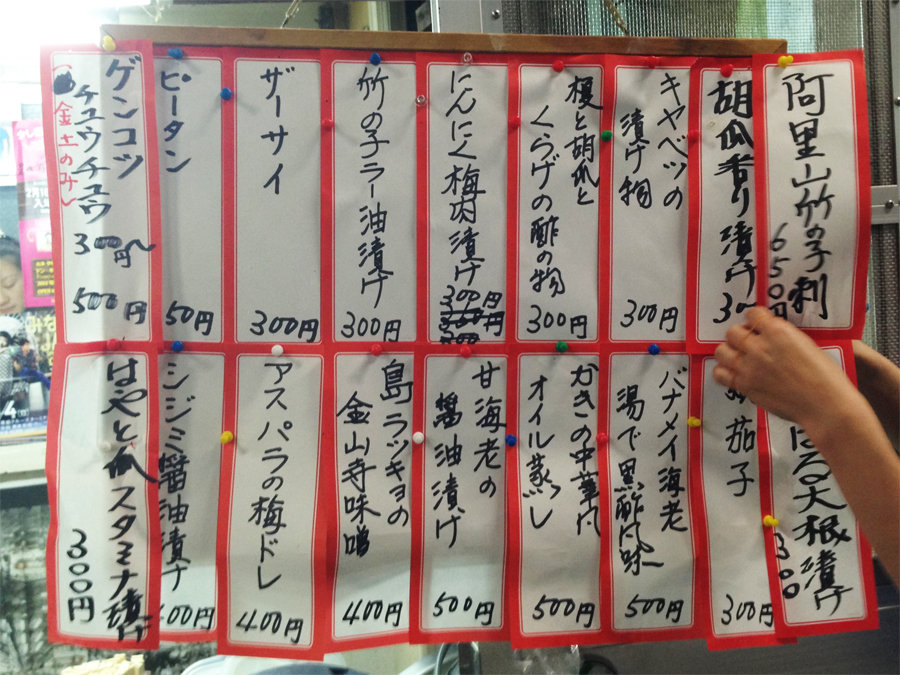 阿里山竹の子刺
650円
胡瓜香り漬け
キャベツの
漬け物
300円
榎と胡瓜と
くらげの酢の物
300円
にんにく梅肉漬け
300円
竹の子ラー油漬け
300円
ザーサイ
300円
ピータン
50円
ゲンコツ
チュウチュウ
(金土のみ)
300円〜
500円
はるさ大根漬け
300
茄子
300円
バナメイ海老
湯で黒酢風味
500円
かきの中華風
オイル蒸し
500円
甘海老の
醤油漬け
500円
島ラッキョの
金山寺味噌
400円
アスパラの梅ドレ
400円
シジミ醤油漬ケ
400円
はやと瓜スタミナ漬け
300円